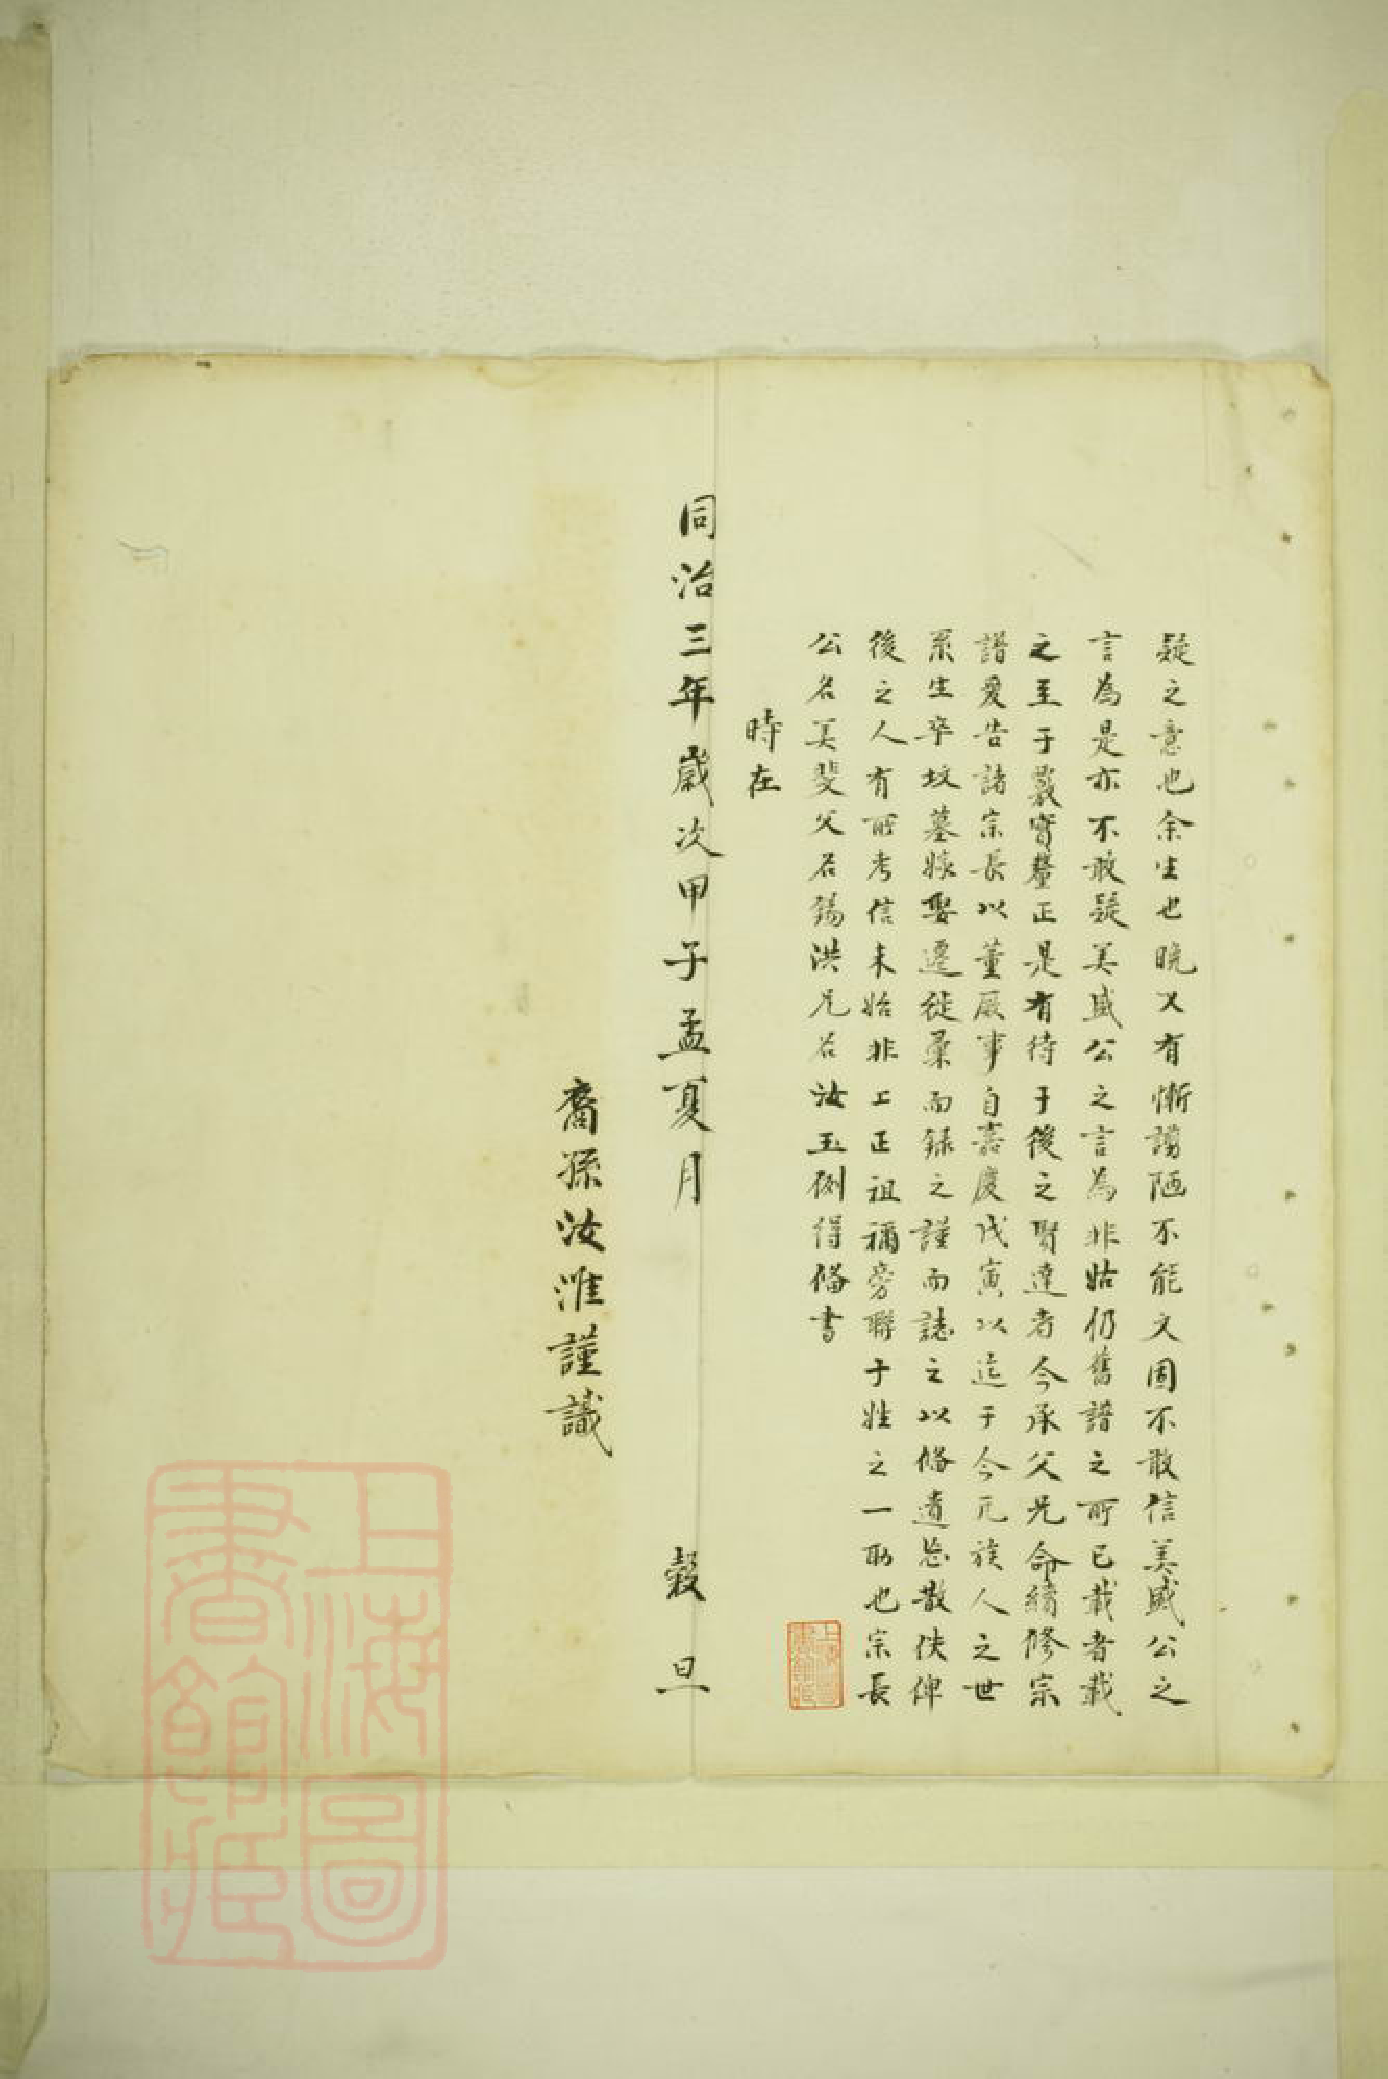 疑之意也余生也晚又有慚謭陋不能文固不敢信美盛公之
言為是亦不敢疑美盛公之言為非姑仍舊譜之所已載者載
之至于覈實釐正是有待于後之賢達者今承父兄命續修宗
譜爰告諸宗長以董厥事自嘉慶戊寅以迄于今凡族人之世
系生卒坟墓嫁娶遷徙彙而録之謹而誌之以俻遺忘散佚俾
後之人有所考信未始非上正祖禰旁聯于姓之一助也宗長
公名美斐父名錫洪兄名汝玉例得俻書
時在
同治三年歲次甲子孟夏月 穀旦
裔孫汝淮謹識
上海圖書館藏
上海圖書館藏